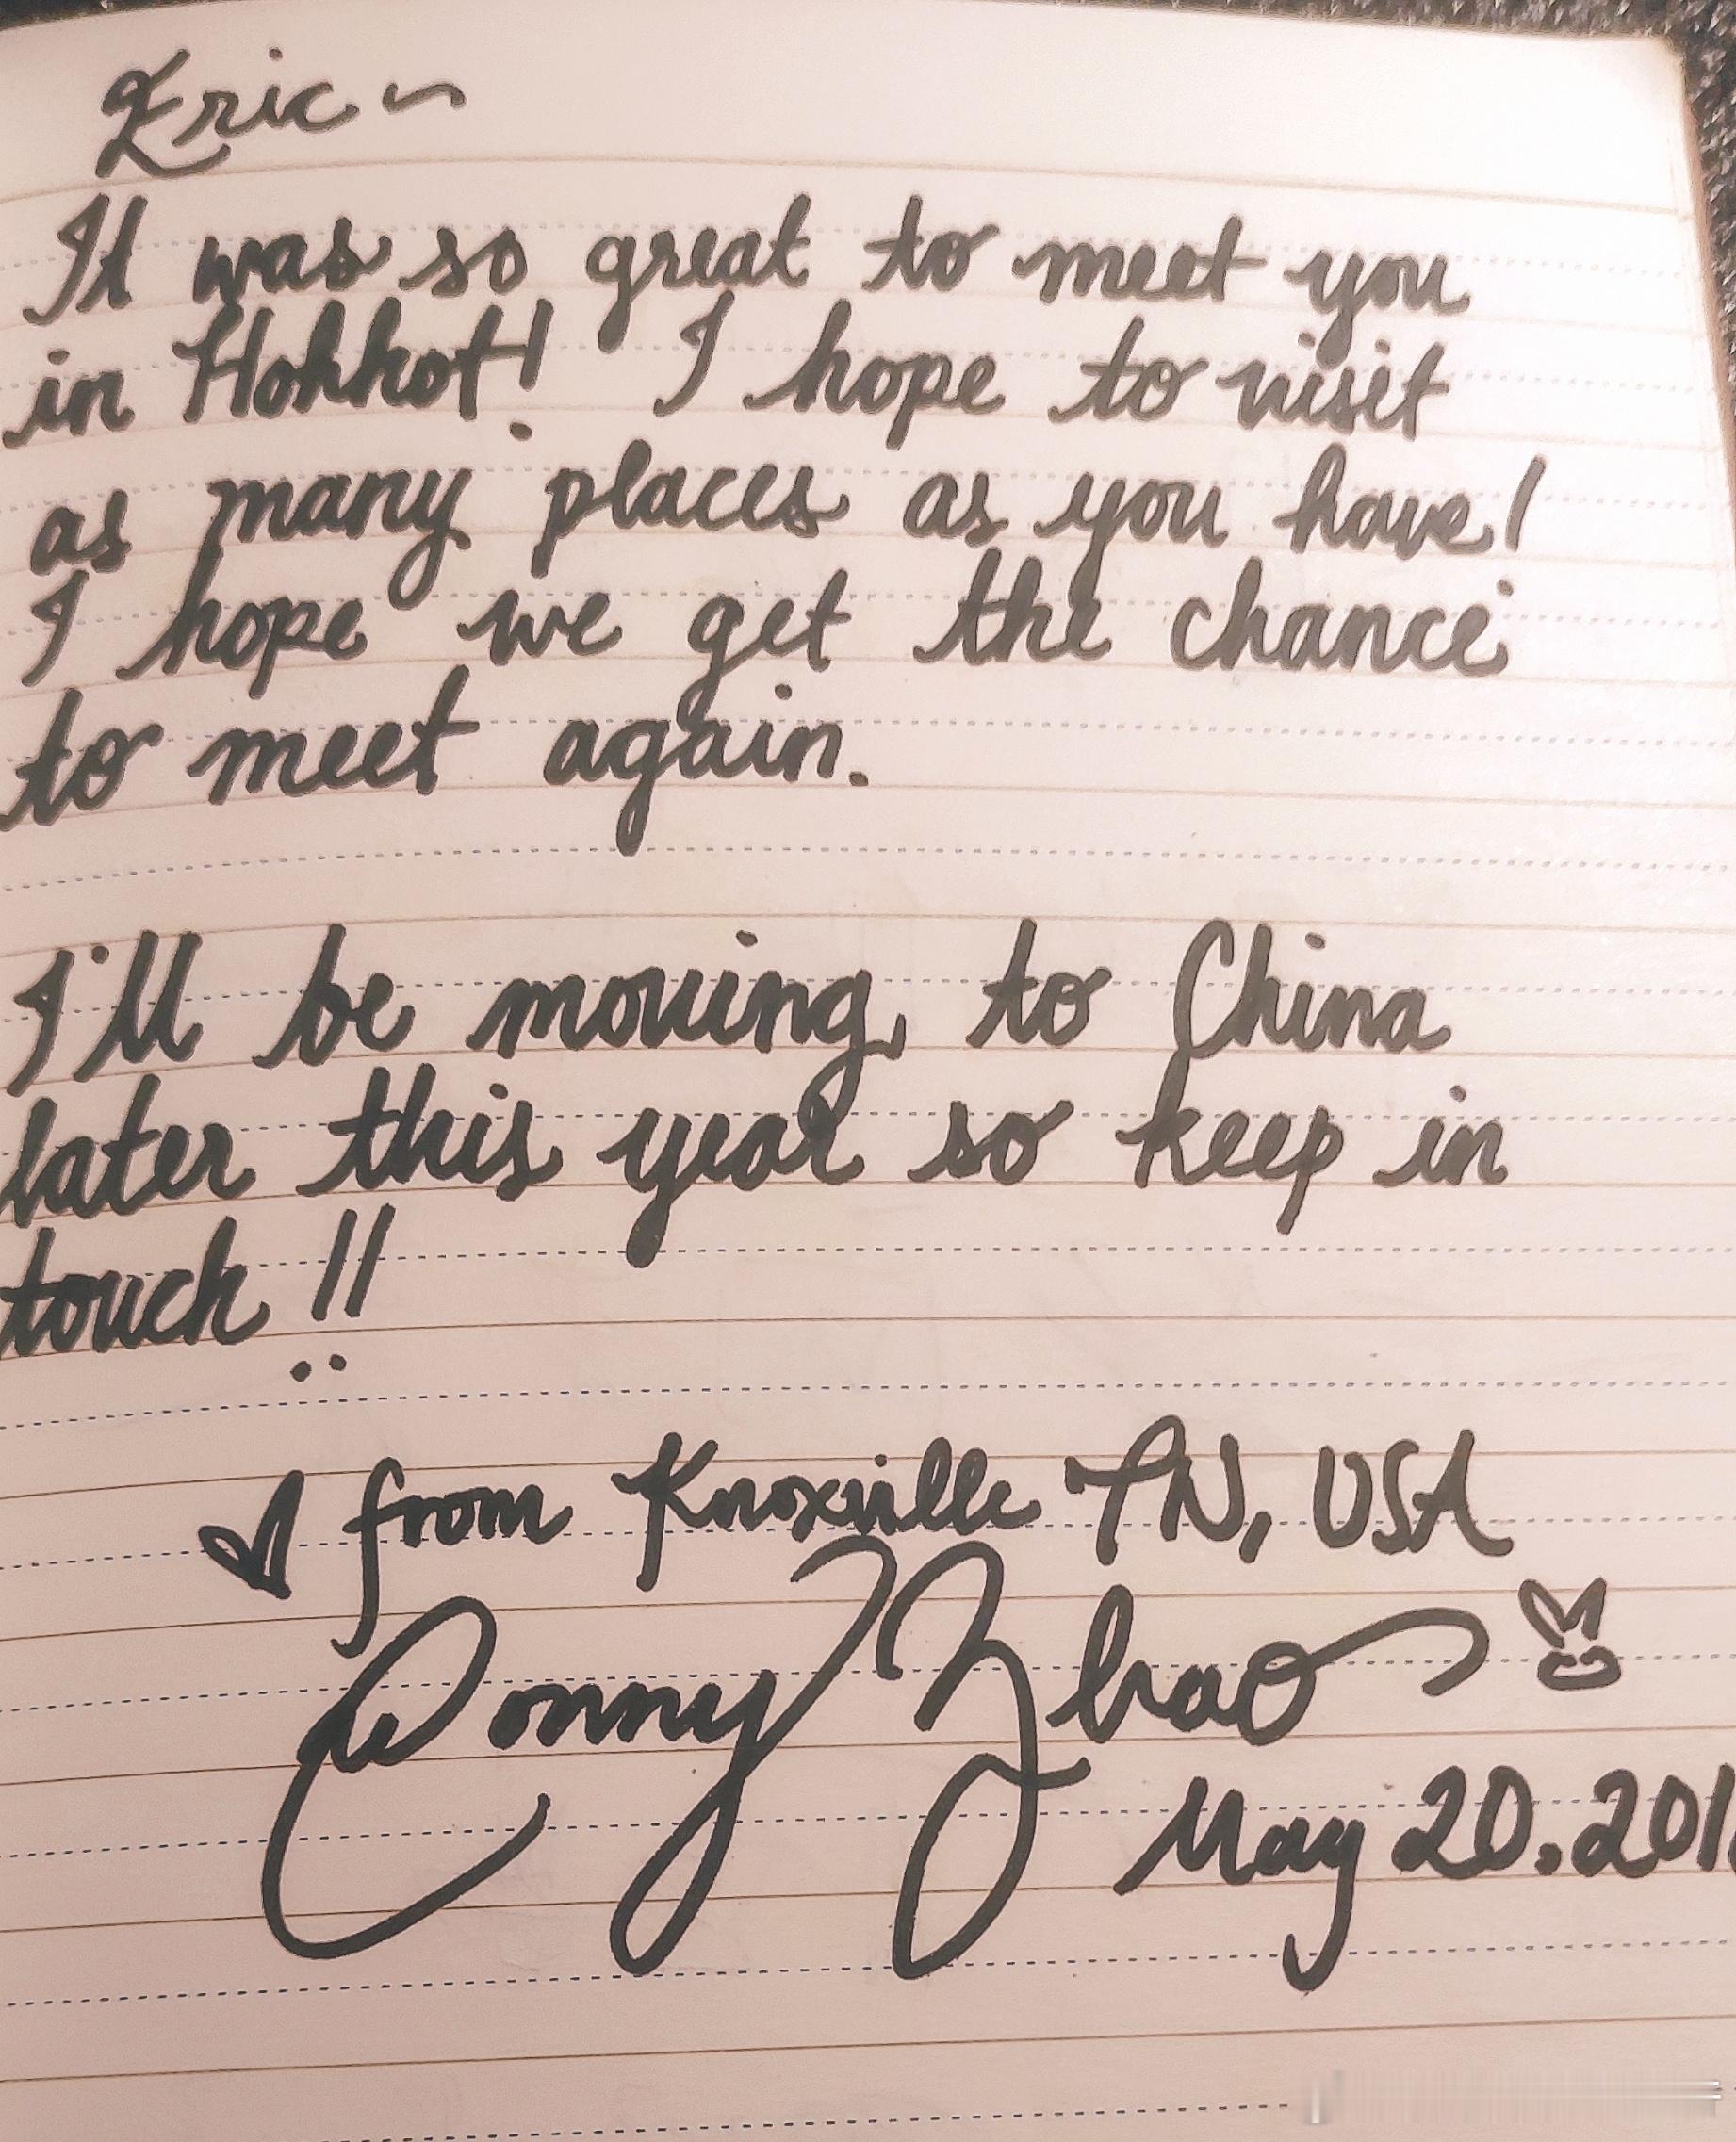 Eric ~
It was so great to meet you
in Hohhot! I hope to visit
as many places as you have!
I hope we get the chance
to meet again.
I'll be moving to China
later this year so keep in
touch!!
♥ from Knoxville TN, USA
Conny Zhao
May 20.201